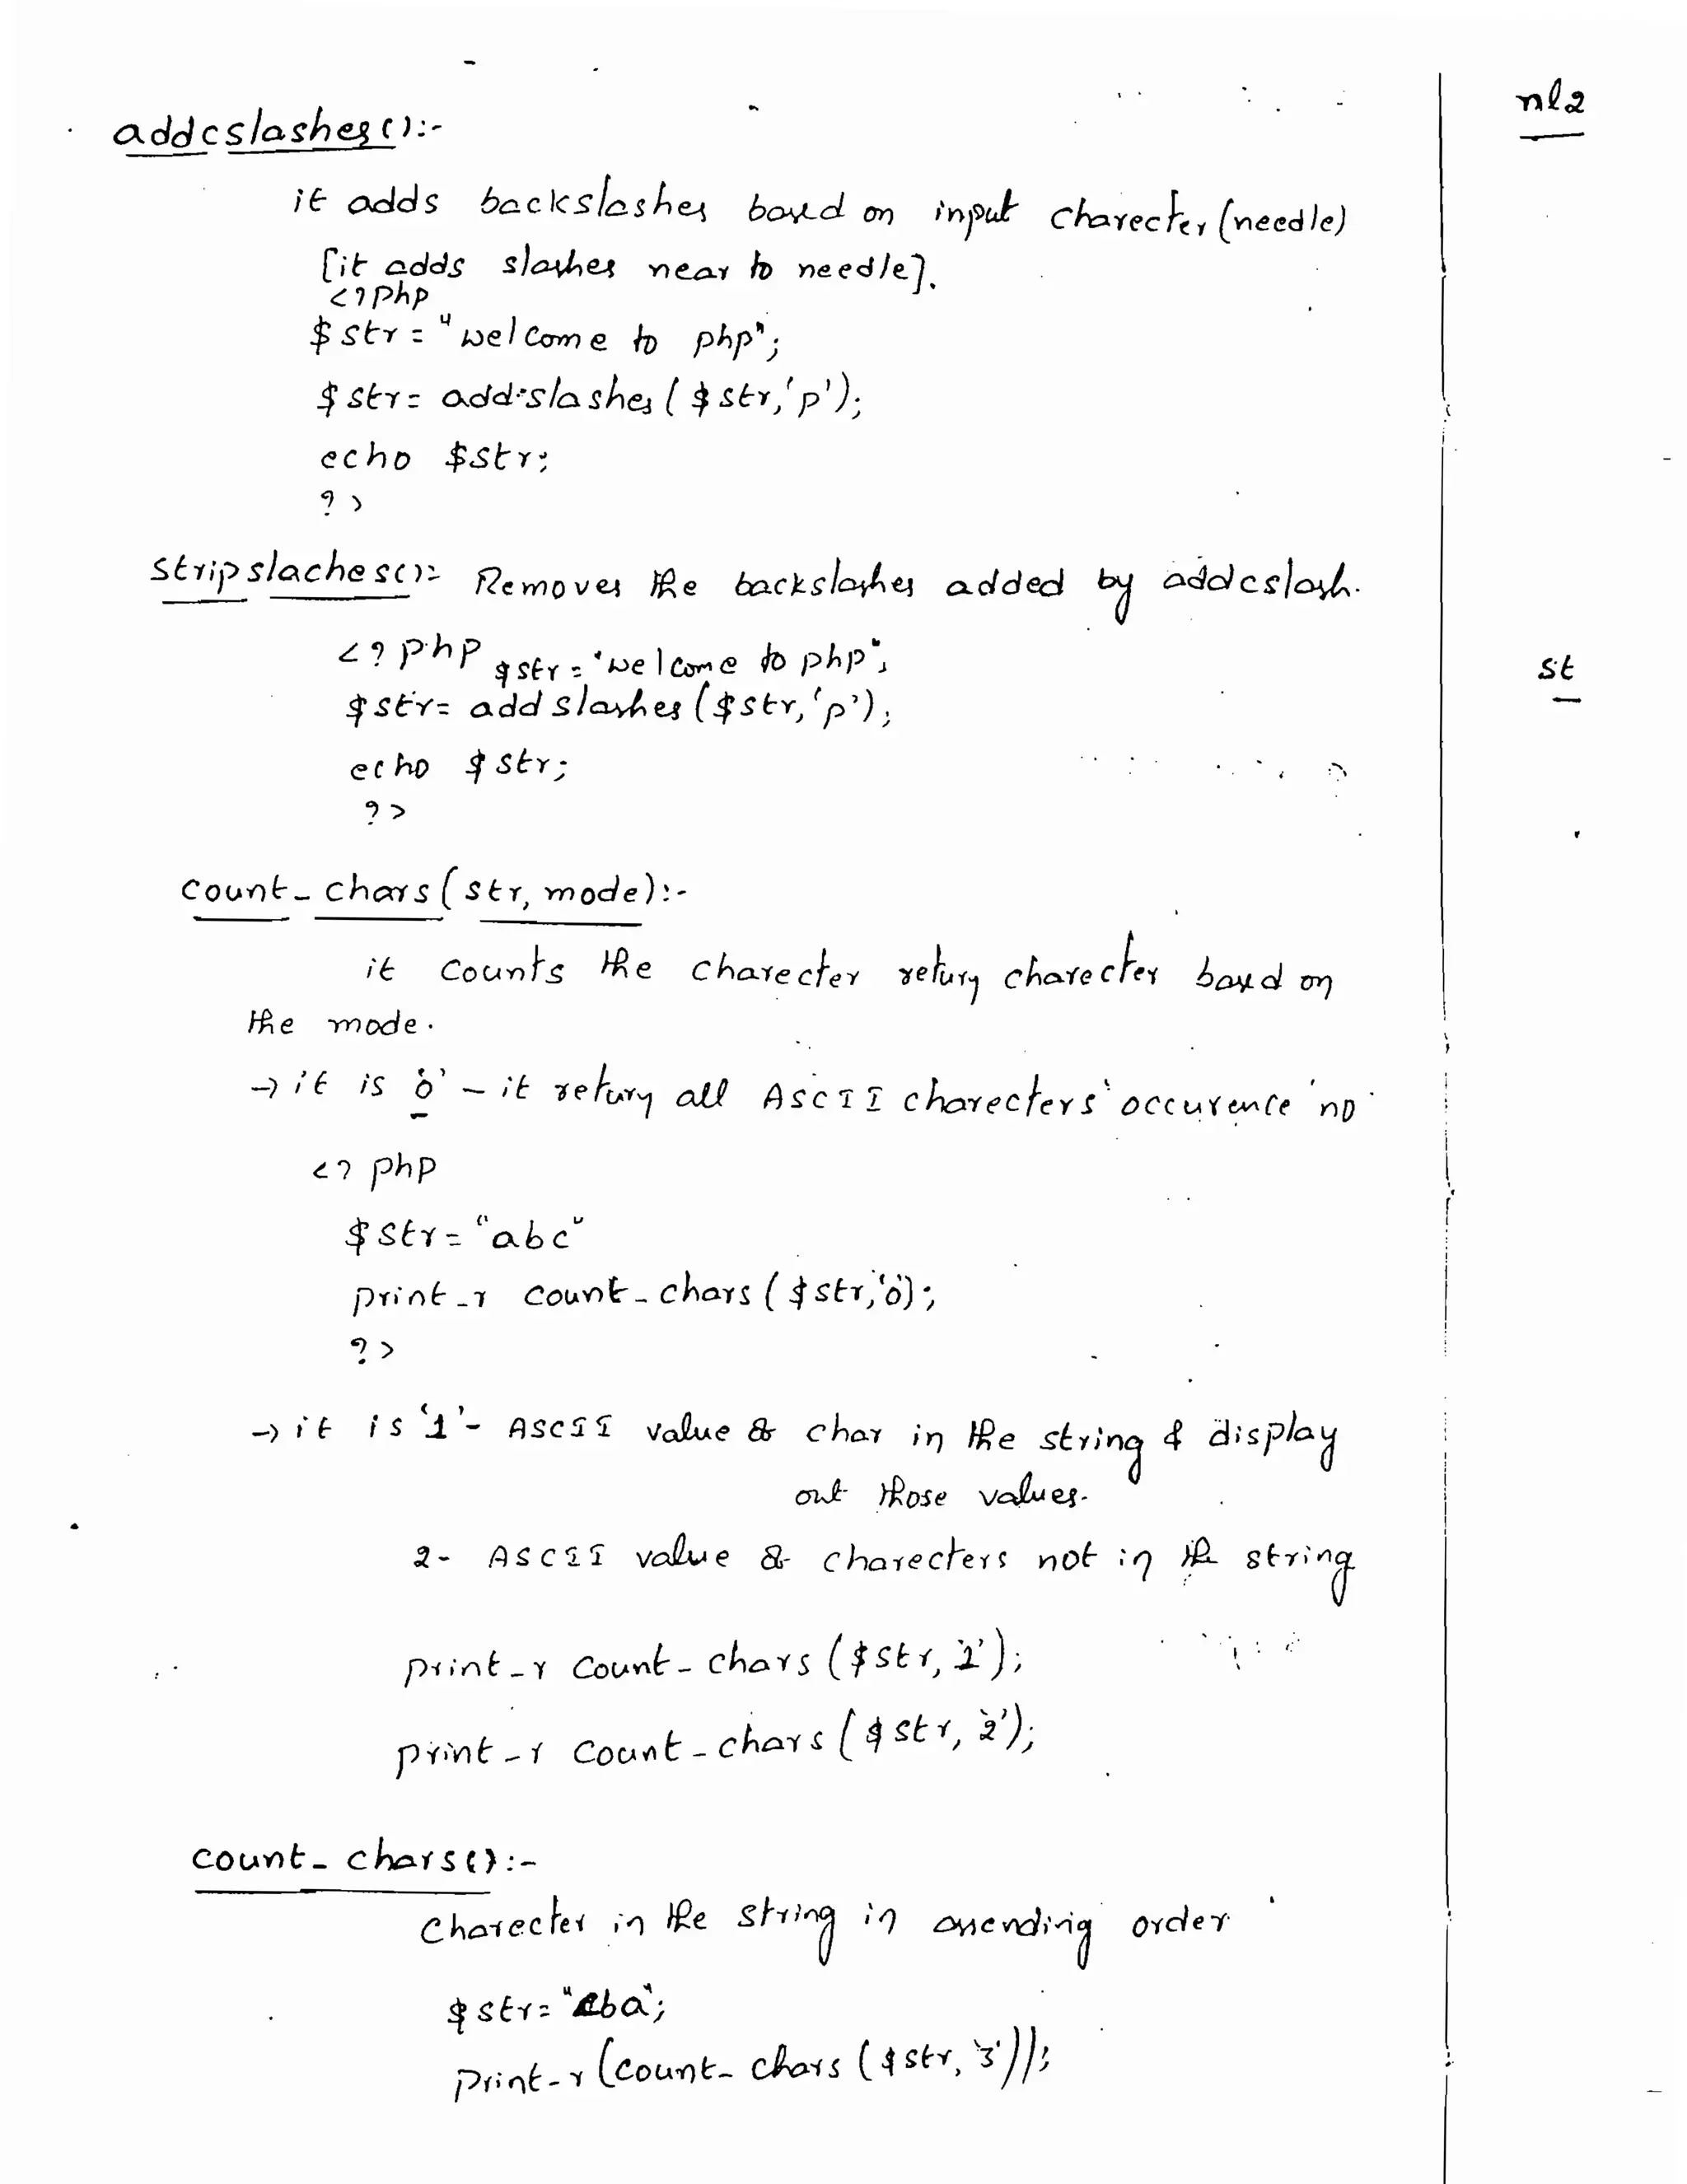 addcslashes():-
it adds backslashes based on input charecter (needle)
[it adds slashes near to needle].
<?php
$str = "welcome to php";
$str = addcslashes($str,'p');
echo $str;
?>
stripslaches():- Removes the backslashes added by addcslash.
<?php $str = "welcome to php";
$str = addslashes($str,'p');
echo $str;
?>
count_chars(str, mode):-
it counts the charecter return charecter based on
the mode.
→ it is '0' – it return all ASCII charecters' occurence no
<?php
$str = "abc"
print_r count_chars($str,'0');
?>
→ it is '1' - ASCII value & char in the string & display
out those values.
2- ASCII value & charecters not in the string
print_r count_chars($str, '1');
print_r count_chars($str, '2');
count_chars():-
Charecter in the string in assending order
$str = "cba";
Print_r (count_chars($str, '3'));
nl2
st